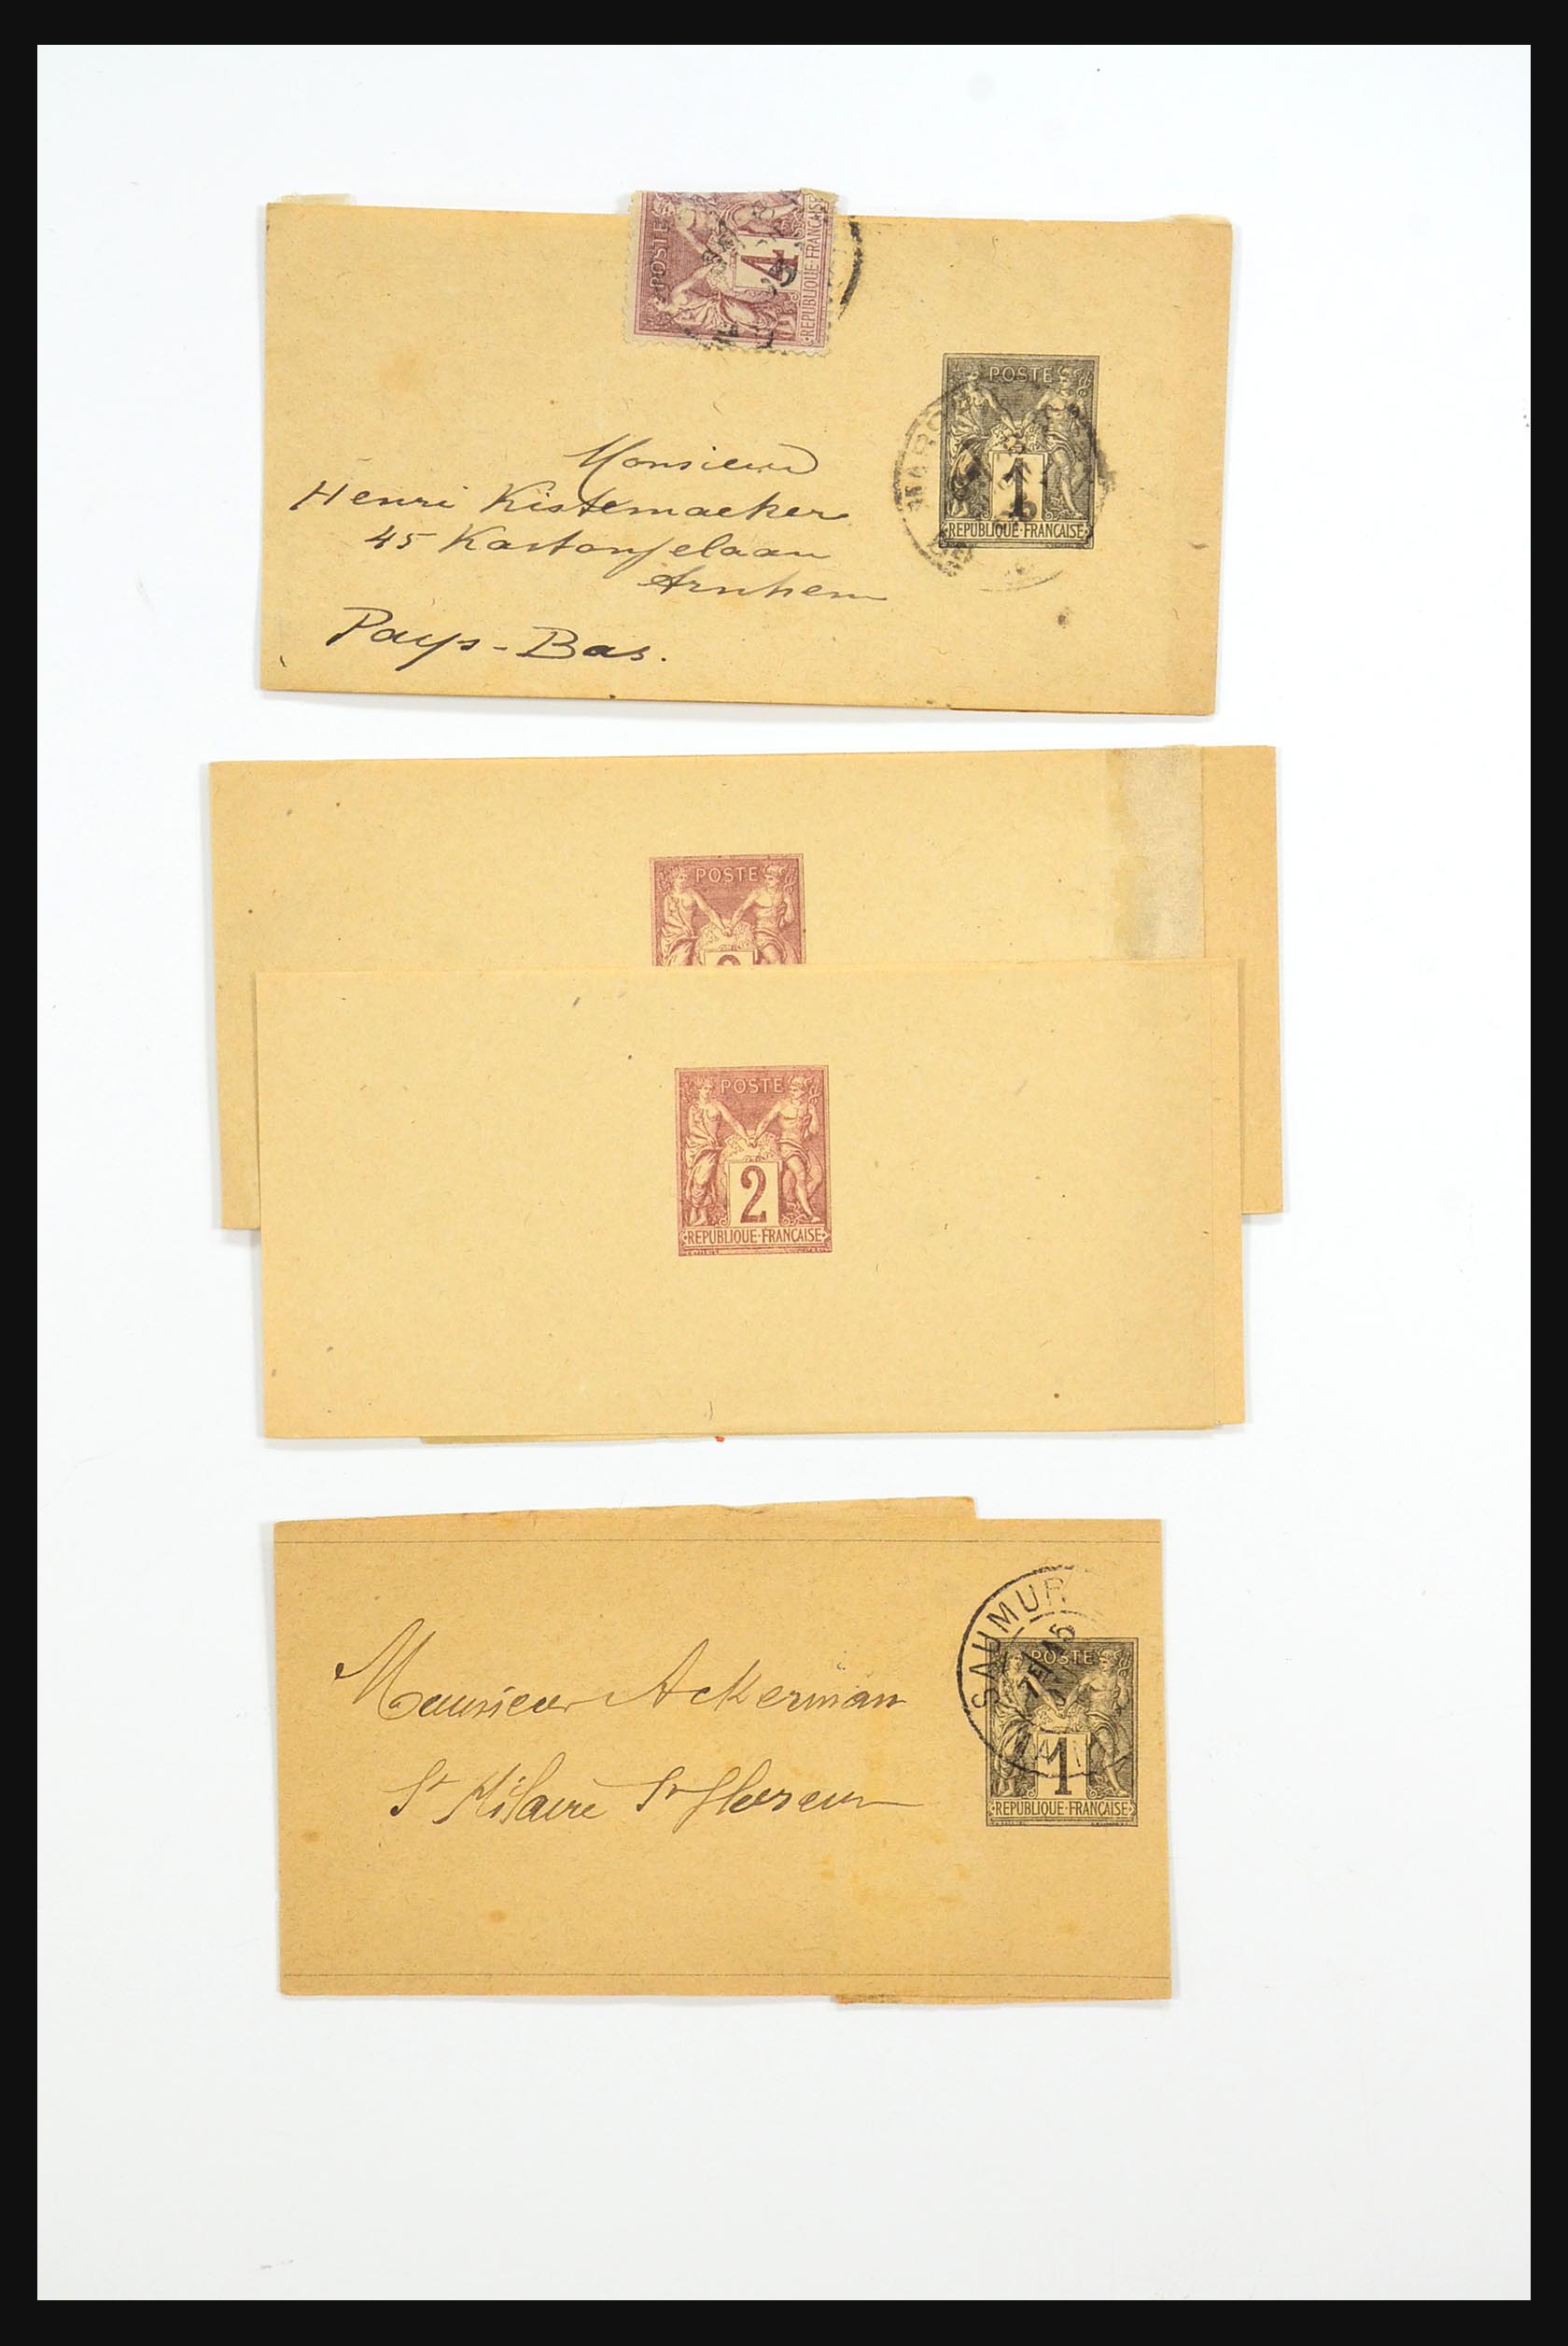 POSTE
4
REPUBLIQUE FRANCAISE
POSTE
1
REPUBLIQUE FRANCAISE
Monsieur
Henri Kistemaeker
45 Kastanjelaan
Arnhem
Pays-Bas.
POSTE
POSTE
2
REPUBLIQUE FRANCAISE
SAUMUR
POSTE
1
REPUBLIQUE FRANCAISE
Monsieur Ackerman
St Hilaire St Florent